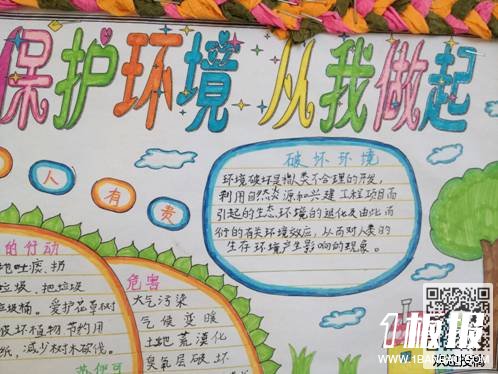 保护环境 从我做起
破坏环境
环境破坏是指人类不合理的开发,
利用自然资源和兴建工程项目而
引起的生态环境的退化及由此而
衍的有关环境效应,从而对人类的
生存环境产生影响的现象。
人有责
的行动
地吐痰、扔
垃圾、把垃圾
垃圾桶。爱护花草树
破坏植物节约用
纸,减少树木砍伐。
危害
大气污染
气候变暖
土地荒漠化
臭氧层破坏
1板报
WWW.1BANBAO.COM